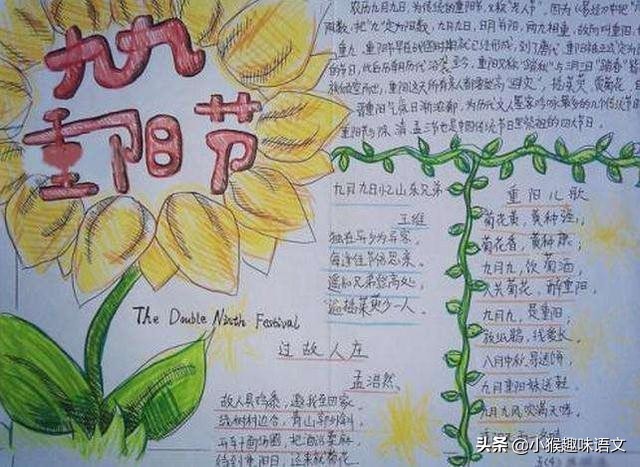 九九
重阳节
农历九月九日,为传统的重阳节,又称"老人节"。因为《易经》中把"
阳数,把"九"定为阳数,九月九日,日月并阳,两九相重,故而叫重阳,
重九,重阳节早在战国时期就已经形成,到了唐代,重阳被正式定
的节日,此后历朝历代沿袭至今。重阳又称"踏秋"与三月三日"踏春"
族倾室而出,重阳这天所有亲人都要登高"避灾",插茱萸、赏菊花。
晋重阳气氛日渐浓郁,为历代文人墨客吟咏最多的几个传统节
重阳节与除、清、盂三节也是中国传统节日里祭祖的四大节日。
九月九日忆山东兄弟
王维
独在异乡为异客,
每逢佳节倍思亲。
遥知兄弟登高处,
遍插茱萸少一人。
重阳儿歌
菊花黄,黄种强;
菊花香,黄种康;
九月九,饮菊酒,
人共菊花,醉重阳。
九月九,是重阳,
放纸鹞,线爱长。
八月中秋
九月重阳
九月九风吹满天
The Double Ninth Festival
过故人庄
孟浩然
故人具鸡黍,邀我至田家。
绿树村边合,青山郭外斜。
开轩面场圃,把酒话桑麻。
待到重阳日,还来就菊花。
头条 @小猴趣味语文